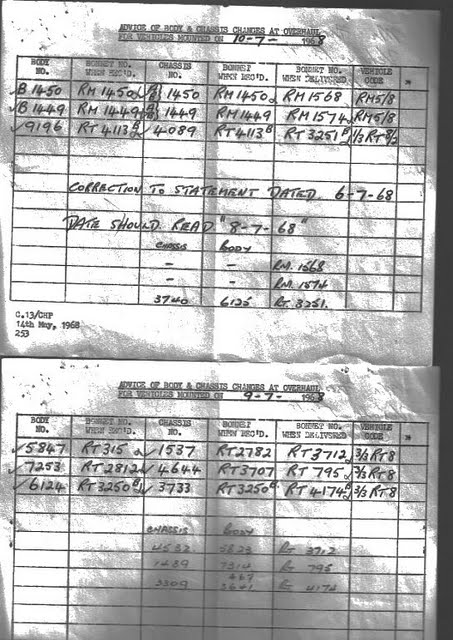 ADVICE OF BODY & CHASSIS CHANGES AT OVERHAUL
FOR VEHICLES MOUNTED ON 10-7- 1968
BODY NO. BONNET NO. WHEN REC'D. CHASSIS NO. BONNET WHEN REC'D. BONNET NO. WHEN DELIVERED VEHICLE CODE
B1450 RM1450 1450 RM1450 RM1568 RM5/8
B1449 RM1449 1449 RM1449 RM1574 RM5/8
9196 RT4113 4089 RT4113 RT3251
CORRECTION TO STATEMENT DATED 6-7-68
DATE SHOULD READ "8-7-68"
CHASSIS BODY
- - RM. 1568
- - RM. 1574
3740 6125 RT. 3251.
C.13/CHP
14th May, 1968
253
ADVICE OF BODY & CHASSIS CHANGES AT OVERHAUL
FOR VEHICLES MOUNTED ON 9-7- 1968
BODY NO. BONNET NO. WHEN REC'D. CHASSIS NO. BONNET WHEN REC'D. BONNET NO. WHEN DELIVERED VEHICLE CODE
5847 RT315 1537 RT2782 RT3712 3/3 RT8
7253 RT2812 4644 RT3707 RT795 3/3 RT8
6124 RT3250 3733 RT3250 RT4174 3/3 RT8
CHASSIS BODY
4532 5623 RT 3712
1489 7314 RT 795
3309 RT 4174